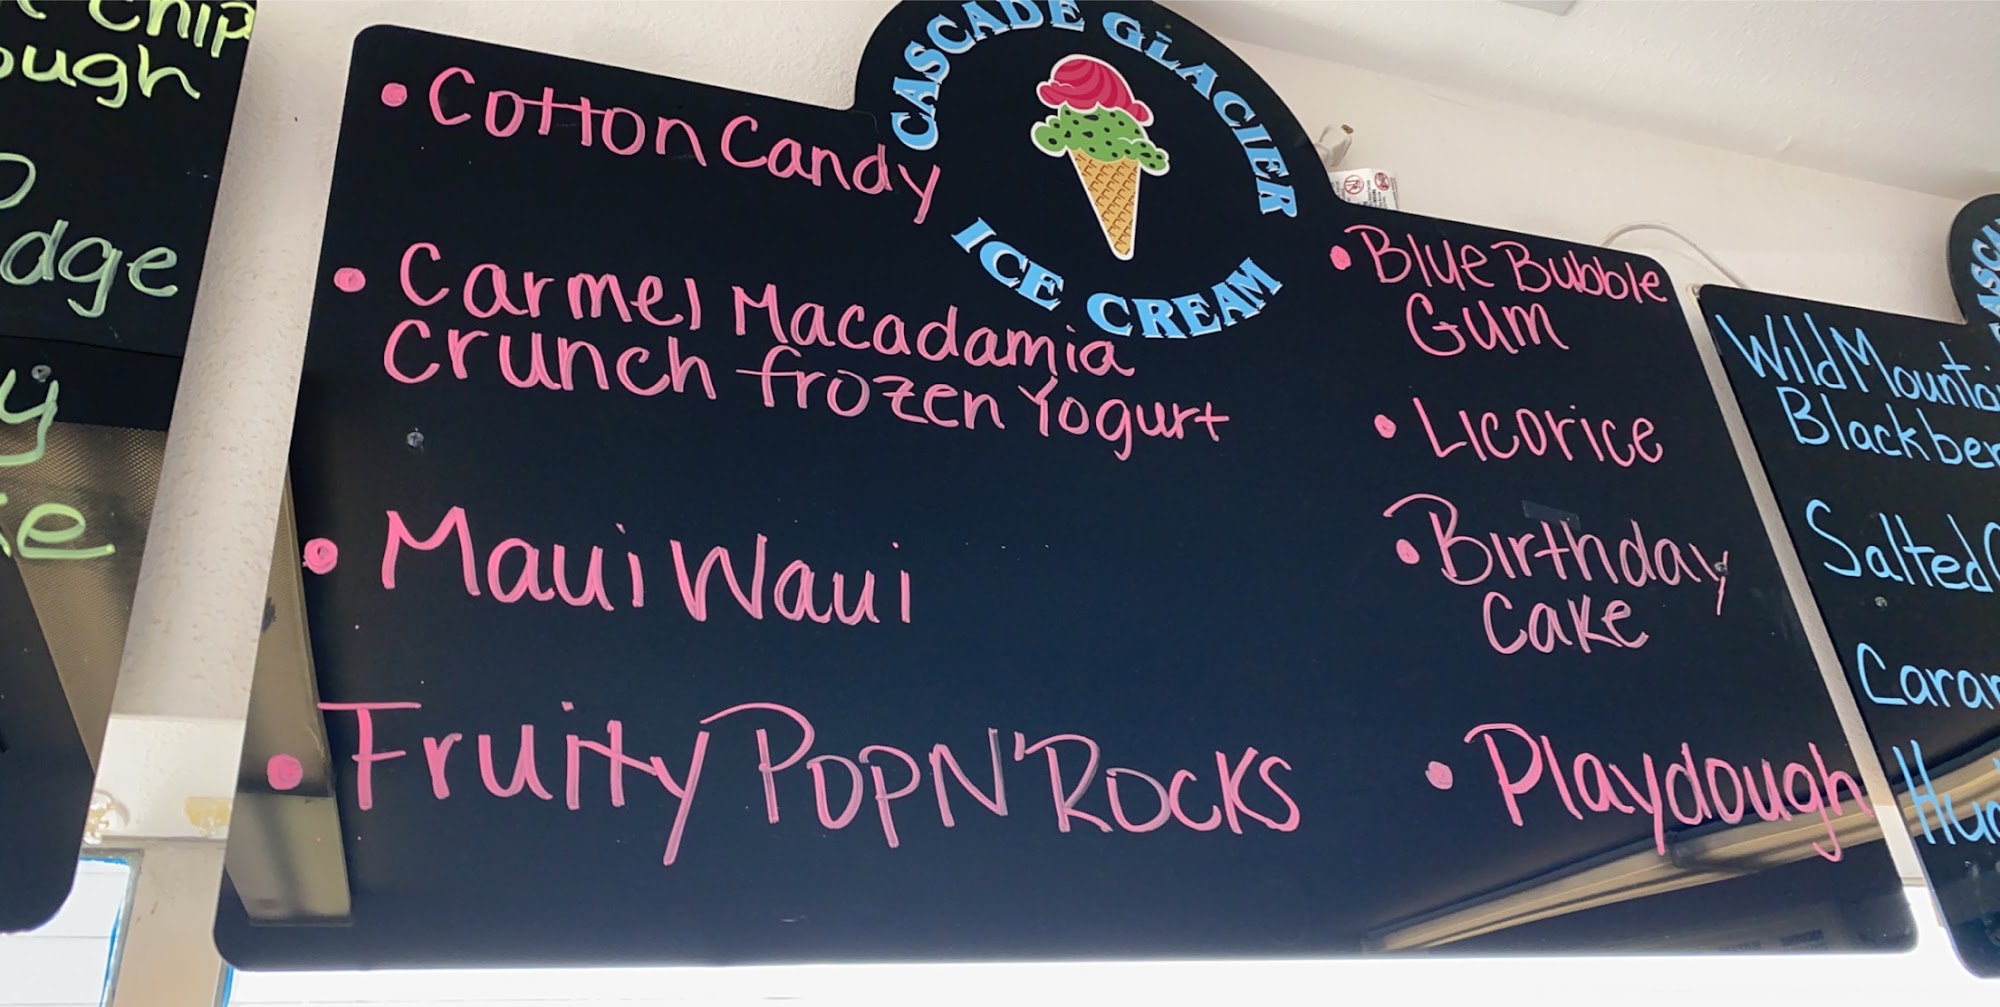 chip
dge
CASCADE GLACIER
ICE CREAM
• Cotton Candy
• Carmel Macadamia
Crunch frozen Yogurt
• Maui Waui
• Fruity POPN'ROCKS
• Blue Bubble
Gum
• Licorice
• Birthday
Cake
• Playdough
Wild
Blackber
Salted